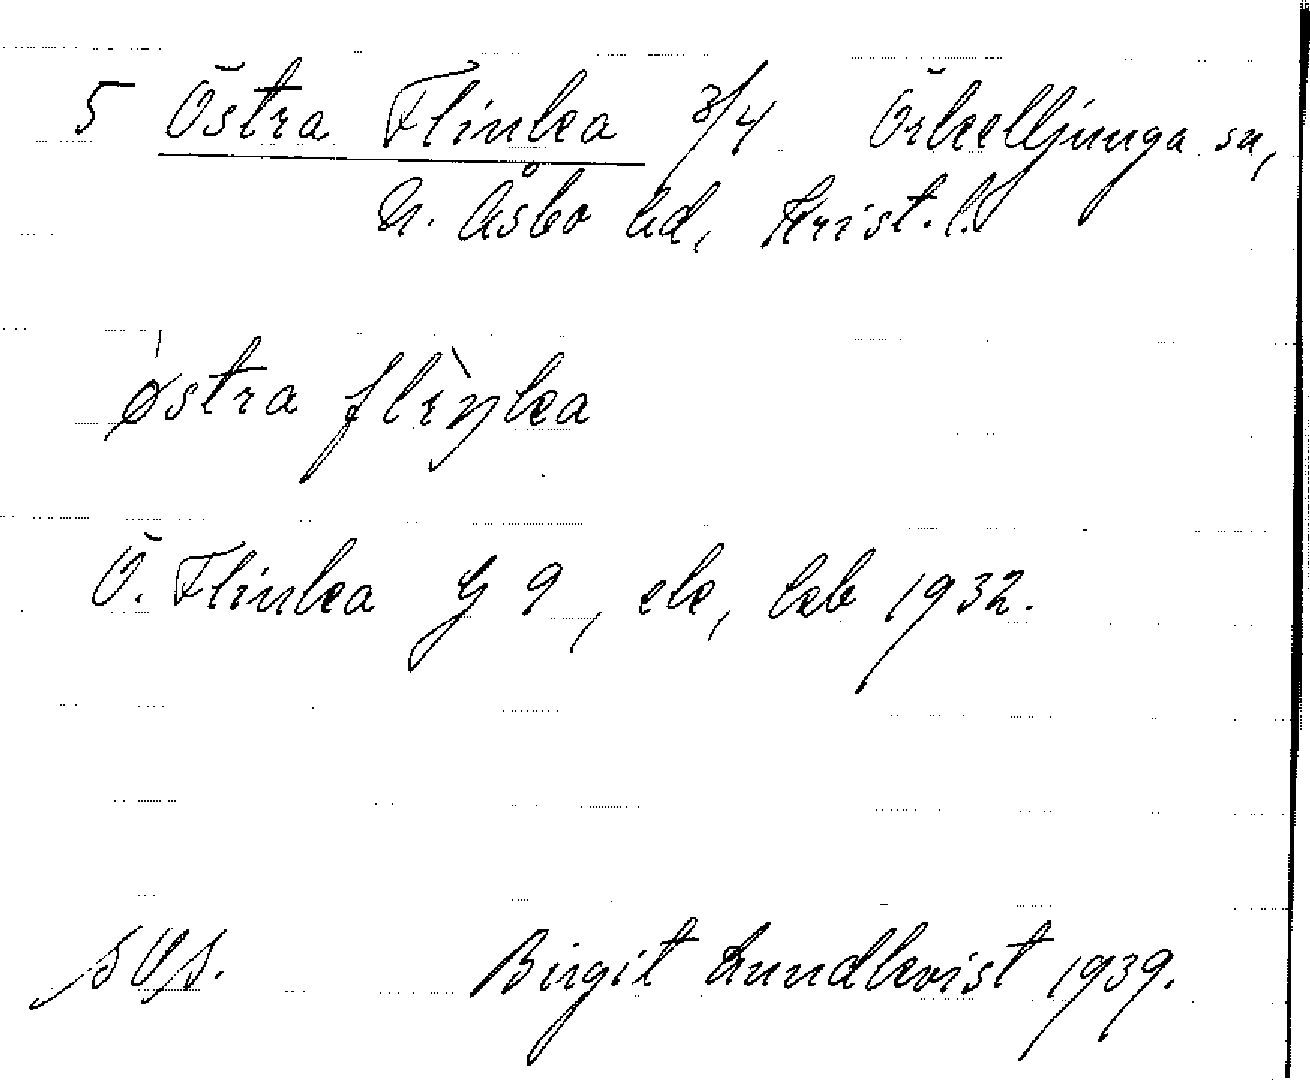 5 Östra Flinka 3/4 Örkelljunga sn,
N. Åsbo hd, Krist. l.
østra flìŋka
Ö. Flinka G 9, ek, kbl 1932.
Birgit Lundkvist 1939.